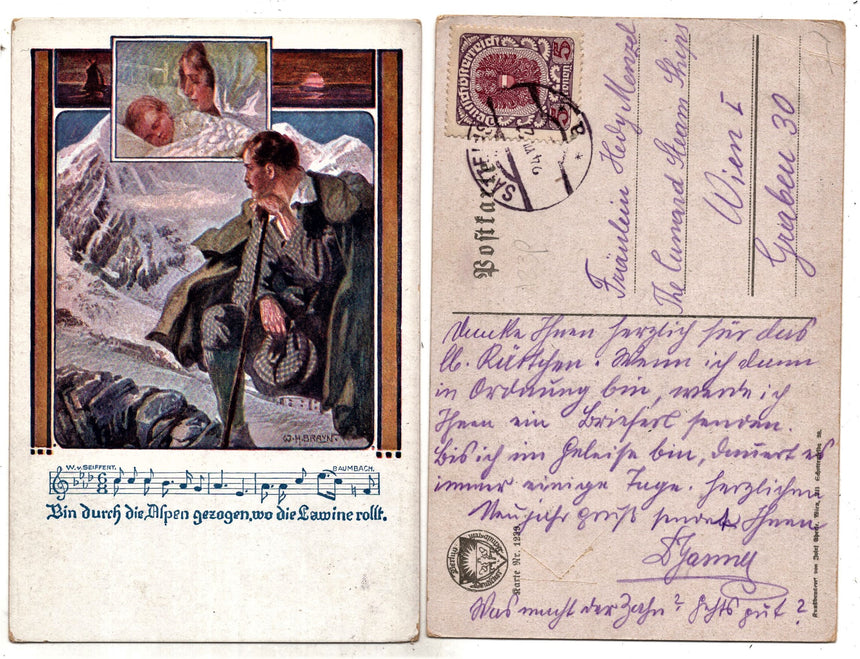 W. v. SEIFFERT.
BAUMBACH.
W.H. BRAUN.
Bin durch die Alpen gezogen, wo die Lawine rollt.
Postkarte
5
Deutschösterreich
Fräulein Hedy Menzel
The Cunard Steam Ships
Wien I
Graben 30
Danke Ihnen herzlich für das
lb. Kärtchen. Wenn ich dann
in Ordnung bin, werde ich
Ihnen ein Brieferl senden.
Bis ich im Geleise bin, dauert es
immer einige Tage. Herzlichen
Neujahr gruß sendet Ihnen
Was macht der Zahn? Gehts gut?
Karte Nr. 1239.